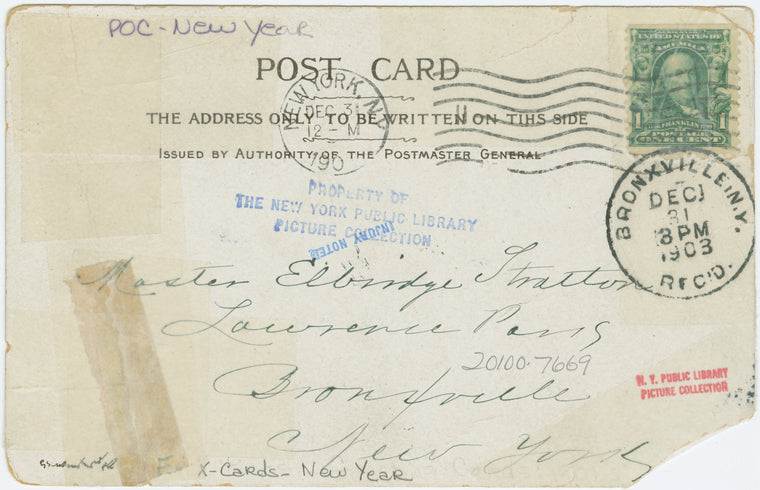 POC - New Year
POST CARD
THE ADDRESS ONLY TO BE WRITTEN ON TIHS SIDE
ISSUED BY AUTHORITY OF THE POSTMASTER GENERAL
NEW YORK, N.Y.
DEC 31
12 - M
190
UNITED STATES OF
AMERICA
1 FRANKLIN 1
POSTAGE
ONE CENT
BRONXVILLE, N.Y.
DEC
31
8 PM
1903
REC'D.
PROPERTY OF
THE NEW YORK PUBLIC LIBRARY
PICTURE COLLECTION
INJURY NOTED
Master Elbridge Stratton
Lawrence Park
20100-7669
Bronxville
New York
N. Y. PUBLIC LIBRARY
PICTURE COLLECTION
X-Cards - New Year